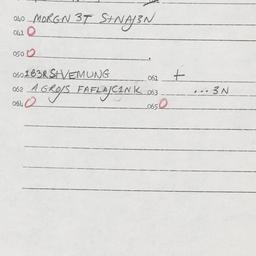 040 MORGN 3T S+NAJ3N
041 O
050 O
060 IB3RSHVEMUNG 061 +
062 A GROJS FAFLAJCINK 063 ...3N
064 O 065 O